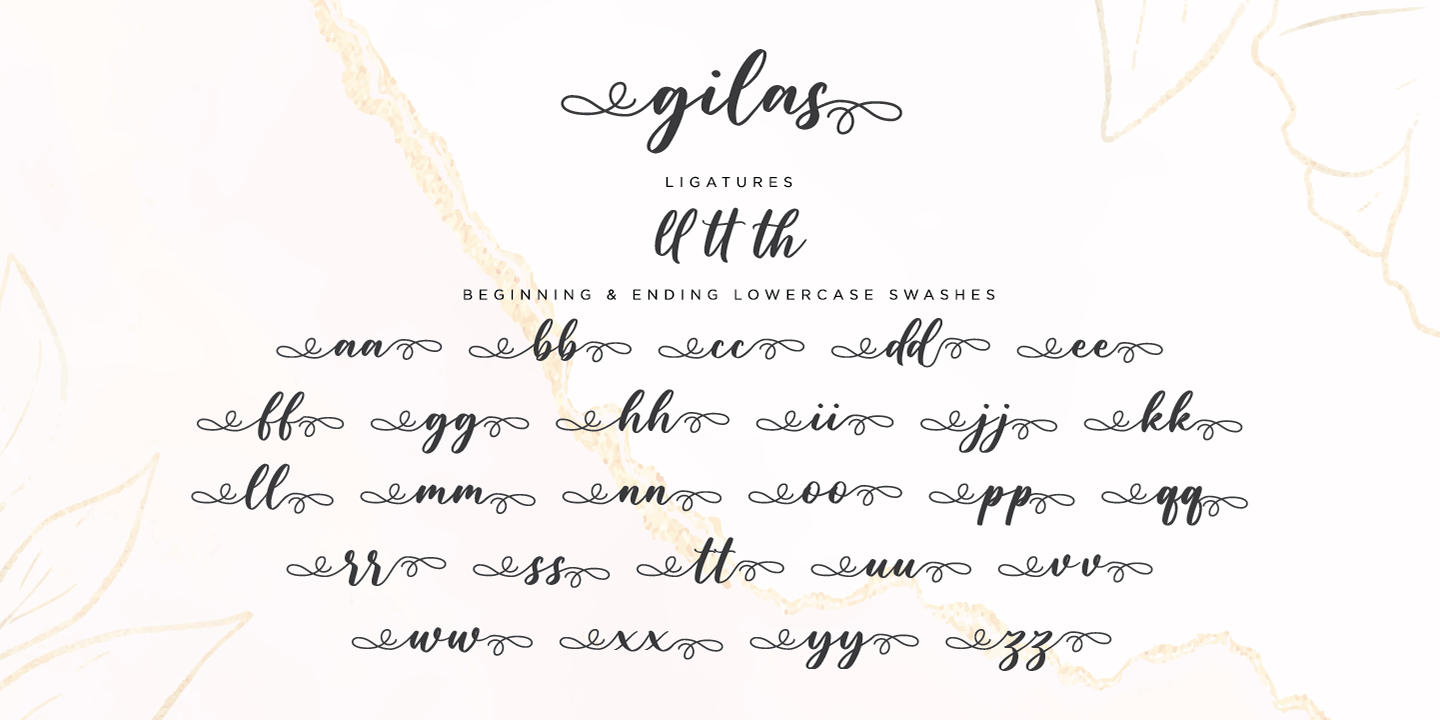 gilas
LIGATURES
ll tt th
BEGINNING & ENDING LOWERCASE SWASHES
aa bb cc dd ee
ff gg hh ii jj kk
ll mm nn oo pp qq
rr ss tt uu vv
ww xx yy zz